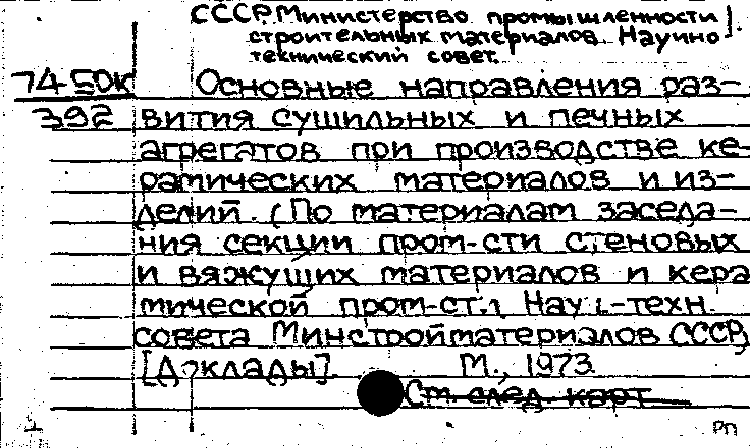 СССР. Министерство промышленности
строительных материалов. Научно-
технический совет.
74-50к Основные направления раз-
392 вития сушильных и печных
агрегатов при производстве ке-
рамических материалов и из-
делий. (По материалам заседа-
ния секции пром-сти стеновых
и вяжущих материалов и кера
мической пром-сти Науч.-техн.
совета Минстройматериалов СССР,
[Доклады]. М., 1973.
См. след. карт
1 РП